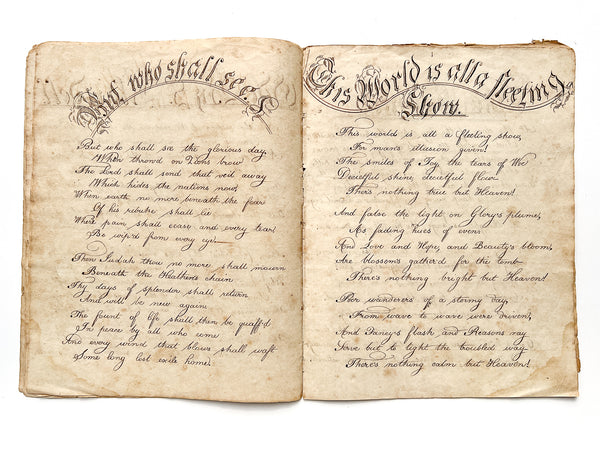 But who shall see.
But who shall see the glorious day,
When thron'd on Zions brow
The Lord shall rend that veil away
Which hides the nations now!
When earth no more beneath the fear
Of his rebuke shall lie
Where pain shall cease and every tear
Be wip'd from every eye
Then Judah thou no more shall mourn
Beneath the Heathens chain
Thy days of splendor shall return
And will be new again
The fount of life shall then be quaff'd
In peace by all who come
And every wind that blows shall waft
Some long lost exile home!
This World is all a fleeting
Show.
This world is all a fleeting show,
For man's illusion given!
The smiles of Joy, the tears of Woe
Deceitful shine, deceitful flow
There's nothing true but Heaven!
And false the light on Glory's plume,
As fading hues of even
And Love and Hope, and Beauty's bloom,
Are blossoms gather'd for the tomb
There's nothing bright but Heaven!
Poor wanderers of a stormy day,
From wave to wave were driven,
And Fancy's flash and Reasons ray
Serve but to light the troubled way
There's nothing calm but Heaven!